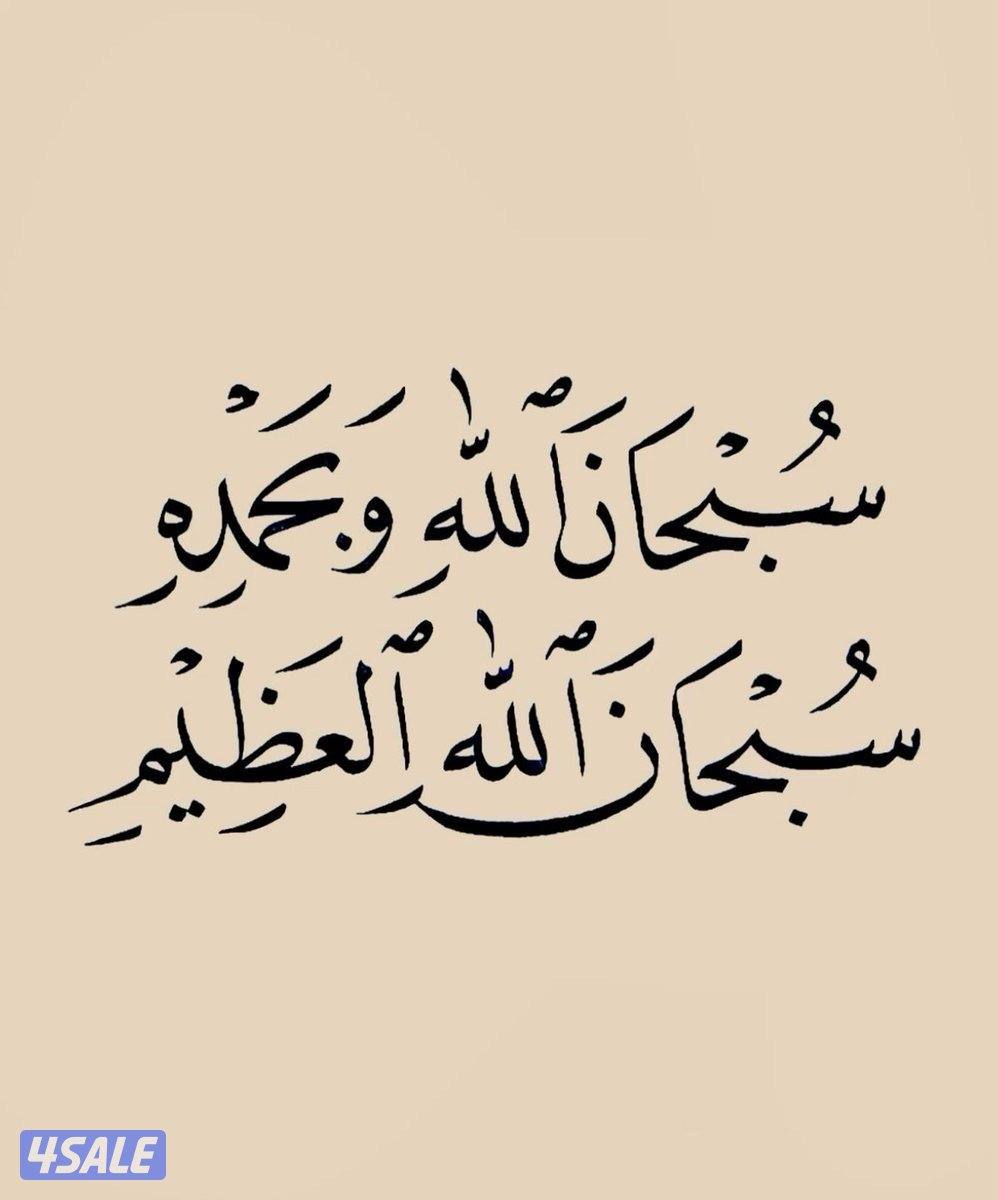 سُبْحَانَ ٱللّٰهِ وَبِحَمْدِهِ
سُبْحَانَ ٱللّٰهِ ٱلْعَظِيْمِ
4SALE